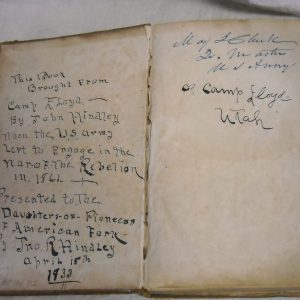 This Book
Brought From
Camp Floyd.
By John Hindley
When the U.S. Army
Left to Engage in the
War of the Rebelion
in. 1861
Presented to the
Daughters of Pioneers
of American Fork
by Jno. R. Hindley
April 15th
1933
Maj
U S Army
of Camp Floyd
Utah